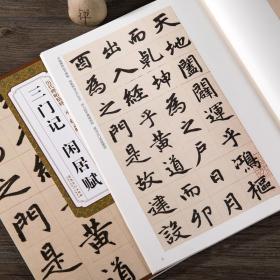 天地闔闢運乎鴻樞
而乾坤為之戶日月
出入經乎黃道而卯
酉為之門是故建設
三门记 闲居赋
黃道
之門是